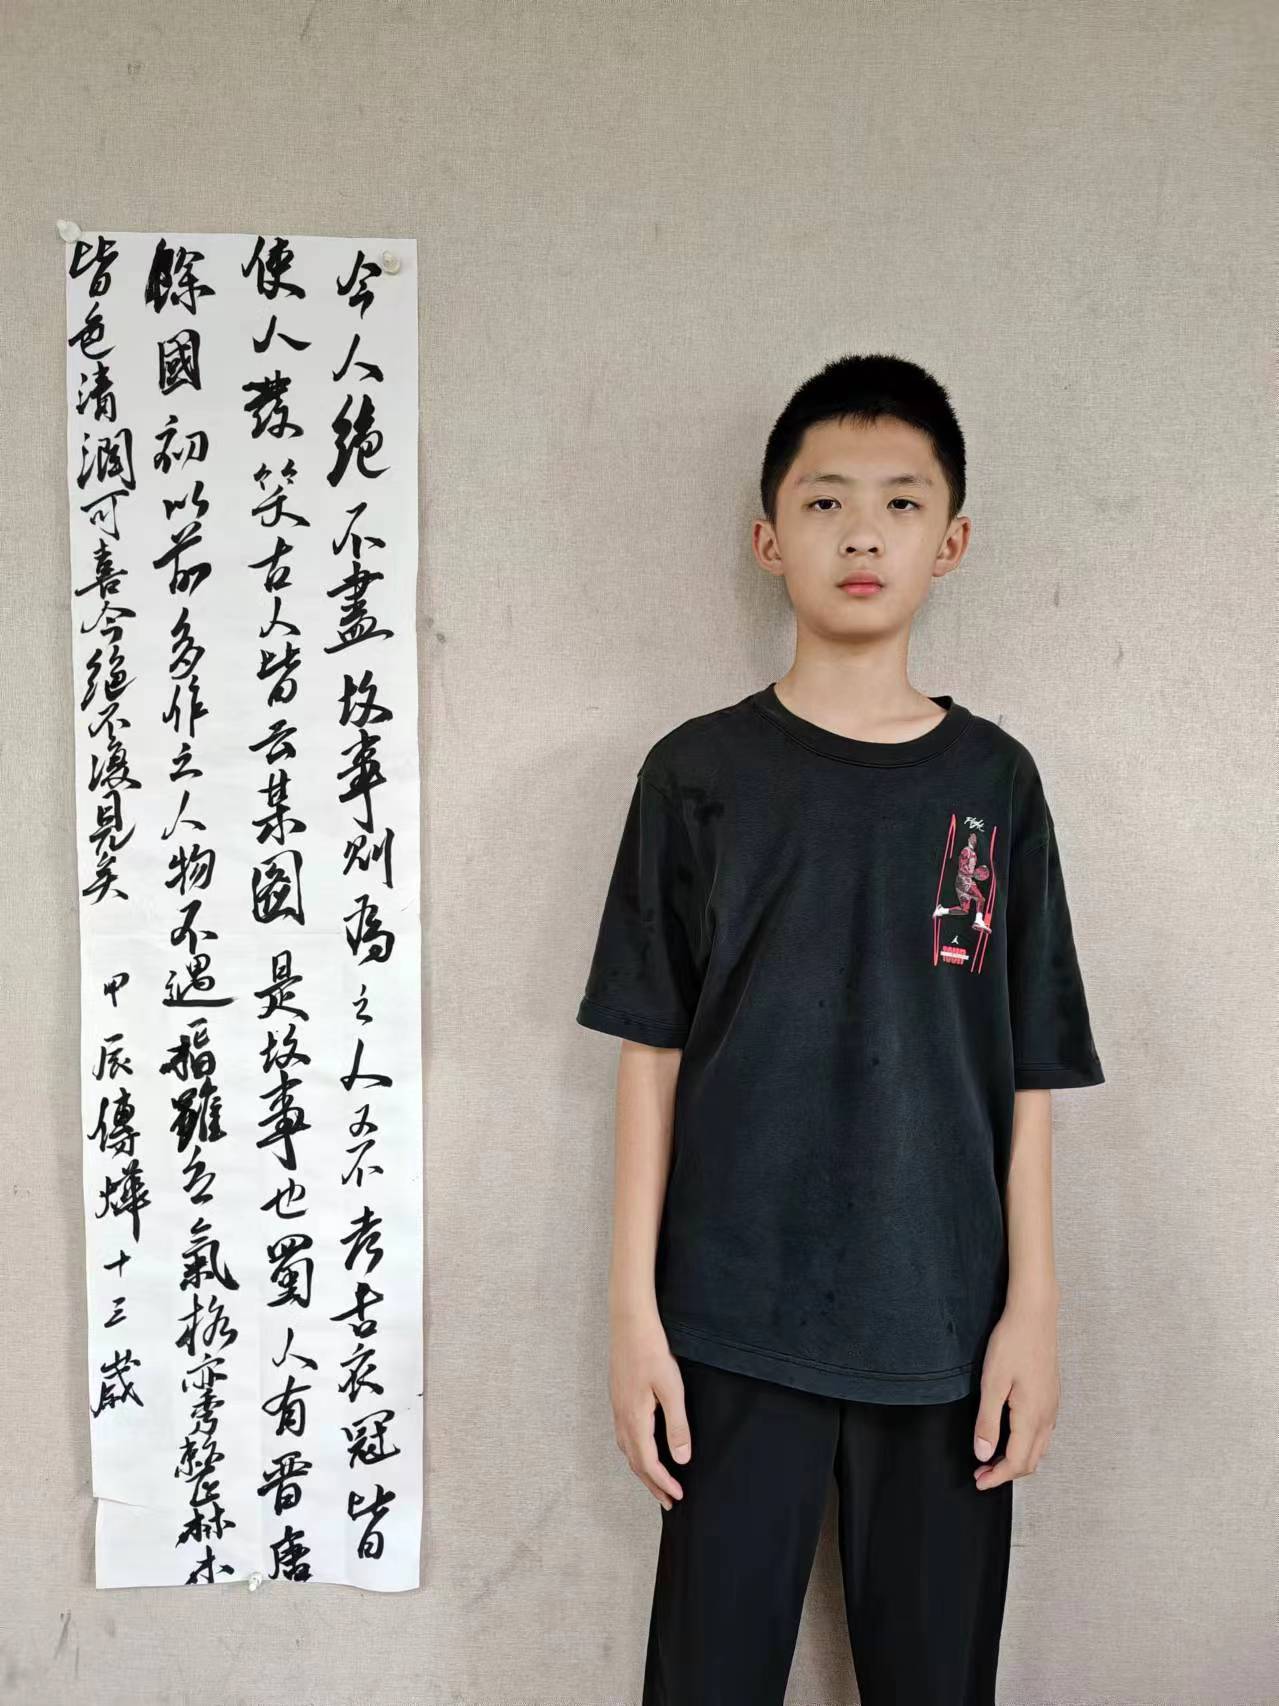 今人絕不盡故事則為之人又不考古衣冠皆
使人發笑古人皆云某圖是故事也蜀人有晉唐
餘國初以前多作之人物不過一指雖乏氣格亦秀整林木
皆色清潤可喜今絕不復見矣 甲辰傅燁十三歲